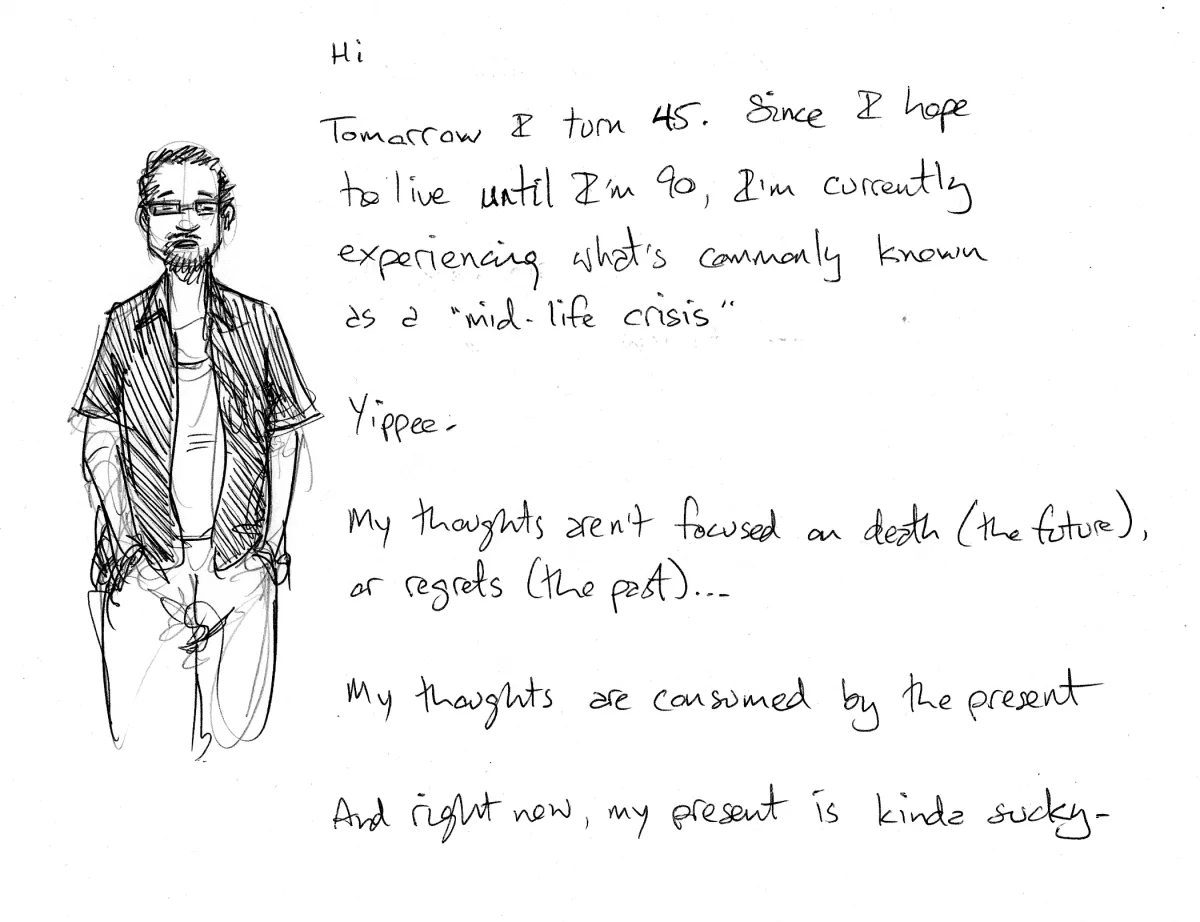 Hi
Tomorrow I turn 45. Since I hope
to live until I'm 90, I'm currently
experiencing what's commonly known
as a "mid-life crisis"
Yippee-
My thoughts aren't focused on death (the future),
or regrets (the past)...
My thoughts are consumed by the present
And right now, my present is kinda sucky-